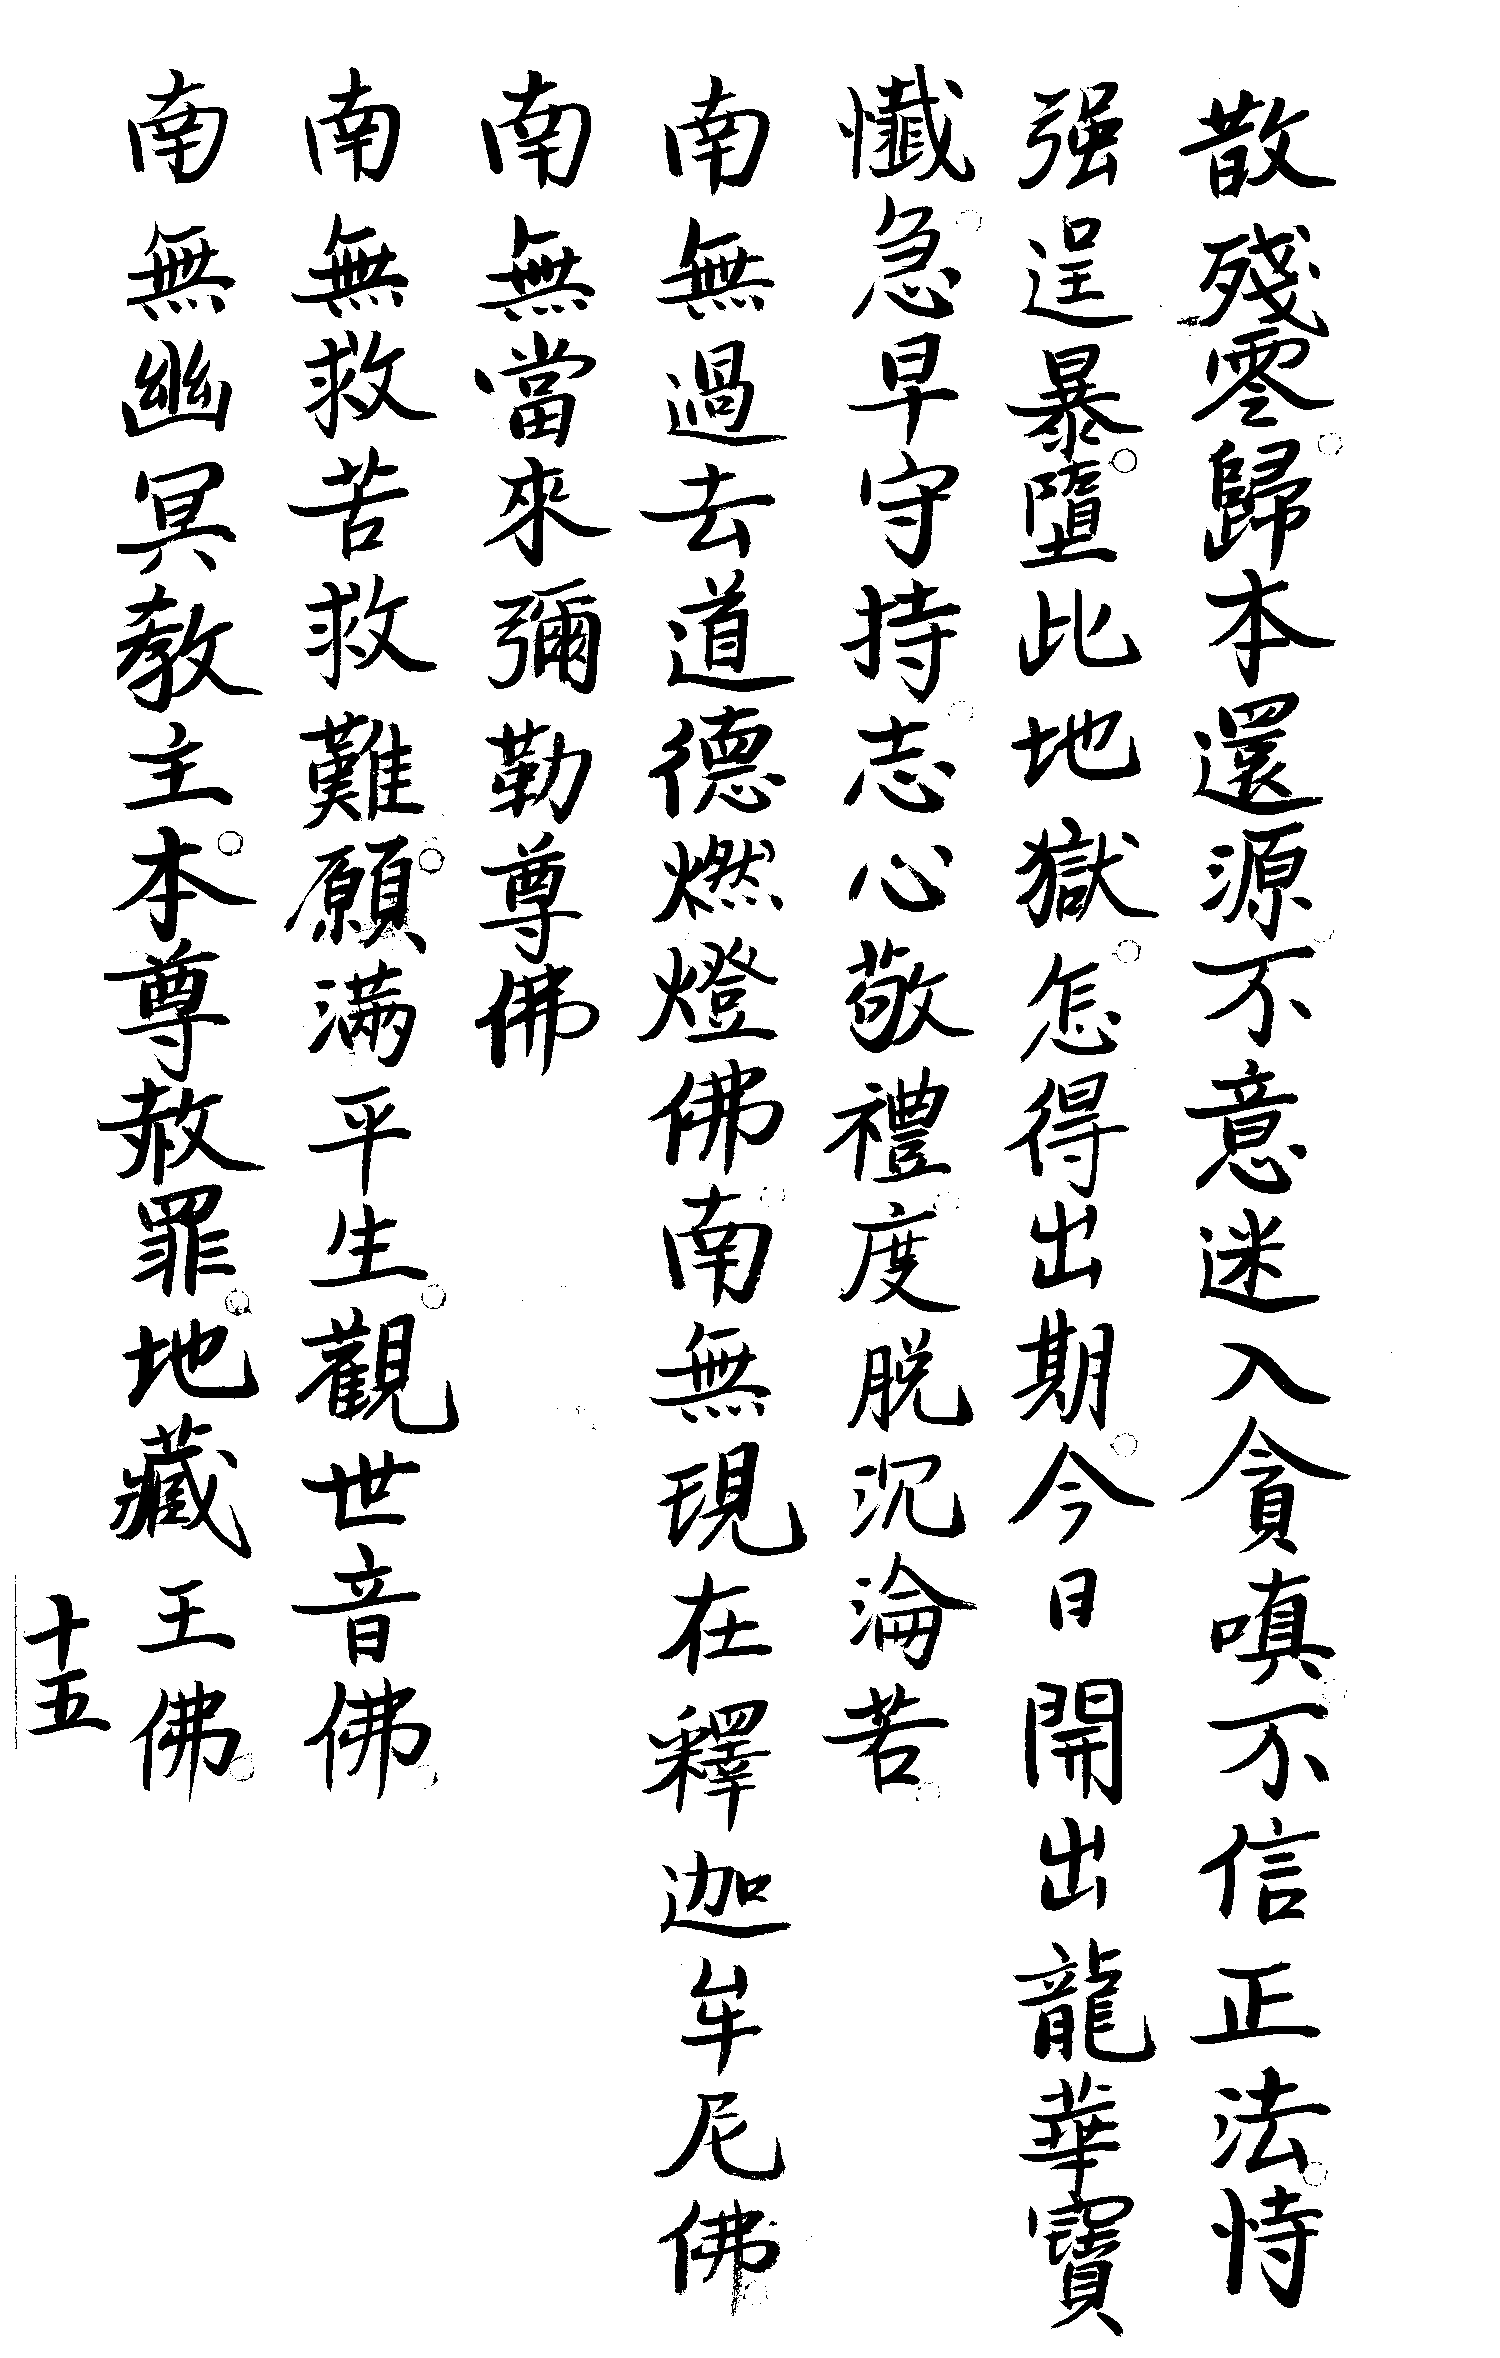 散殘零。歸本還源。不意迷入貪嗔。不信正法。恃
强逞暴。墮此地獄。怎得出期。今日開出龍華寶
懺。急早守持。志心敬禮。度脱沉淪苦。
南無過去道德燃燈佛。南無現在釋迦牟尼佛。
南無當來彌勒尊佛
南無救苦救難。願滿平生。觀世音佛。
南無幽冥教主。本尊赦罪。地藏王佛。
十五